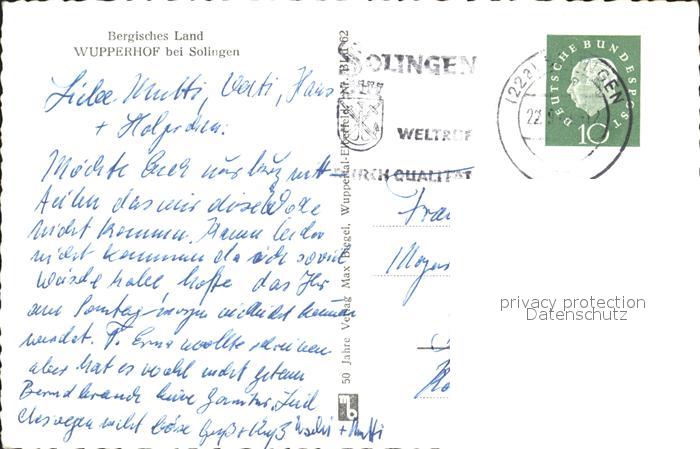 Bergisches Land
WUPPERHOF bei Solingen
Liebe Mutti, Vati, Hans
+
Möchte Euch nur kurz mit-
das wir diese Woche
nicht kommen. Kann leider
nicht kommen da ich soviel
Wäsche habe hoffe das Ihr
am Sonntag morgen vielleicht kommen
werdet. T. Erna wollte schreiben
aber hat es wohl nicht getan
Bernd braucht keine Garnitur. Seid
deswegen nicht böse Gruß + Kuß + Mutti
50 Jahre Verlag Max Biegel, Wuppertal-Elberfeld, Nr. 62
SOLINGEN
WELTRUF
DURCH QUALITÄT
(22a) SOLINGEN
22.
DEUTSCHE BUNDESPOST
10
Frau
privacy protection
Datenschutz
mb